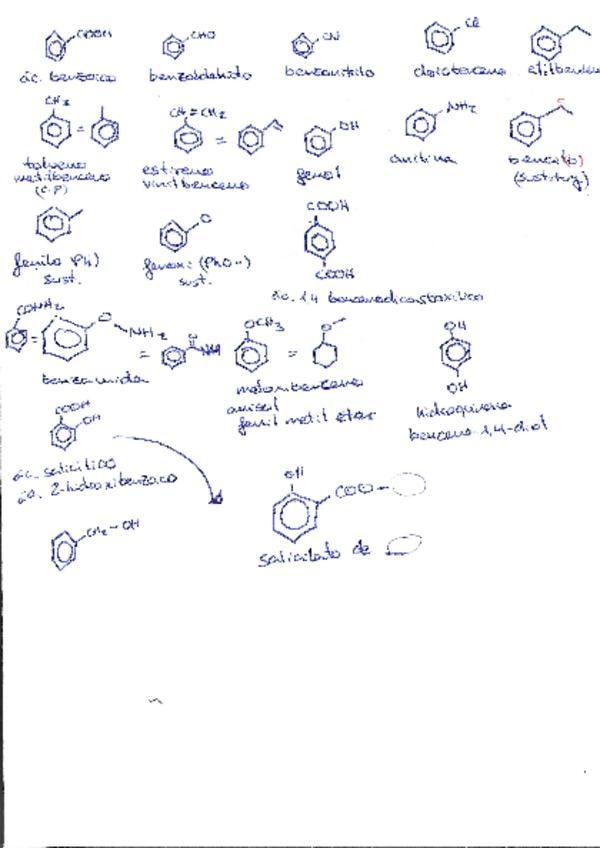 COOH
CHO
CN
Cl
ác. benzoico
benzaldehído
benzonitrilo
clorobenceno
etilbenceno
CH3
=
CH=CH2
=
OH
NH2
tolueno
metilbenceno
(c.p)
estireno
vinilbenceno
fenol
anilina
(sustituy)
O
COOH
COOH
fenilo (Ph)
sust.
fenoxi (PhO-)
sust.
ác. 1,4 bencenodicarboxílico
CONH2
=
O
NH2
=
O
OCH3
=
O
OH
OH
benzamida
metoxibenceno
anisol
fenil metil éter
hidroquinona
benceno 1,4-diol
COOH
OH
ác. salicílico
ác. 2-hidroxibenzoico
OH
COO-
salicilato de
CH2-OH